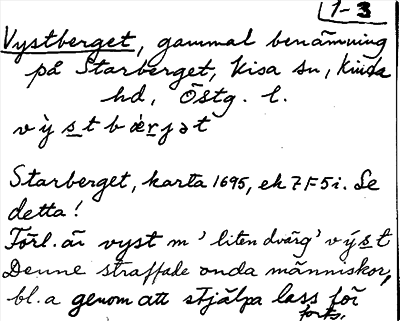 1-3
Vystberget, gammal benämning
på Starberget, Kisa sn, Kinda
hd, Östg. l.
v ỳ s t b æ r j ə t
Starberget, karta 1695, ek 7F5i. Se
detta!
Förl. är vyst m 'liten dvärg' v ý s t
Denne straffade onda människor,
bl.a genom att stjälpa lass för
forts.